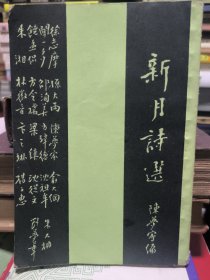 新月詩選
陳夢家編
徐志摩 孫大雨 陳夢家 俞大綱 朱大枬
聞一多 邵洵美 方瑋德 沈祖牟
饒孟侃 方令孺 梁鎮 沈從文 劉夢葦
朱湘 林徽音 卞之琳 楊子惠